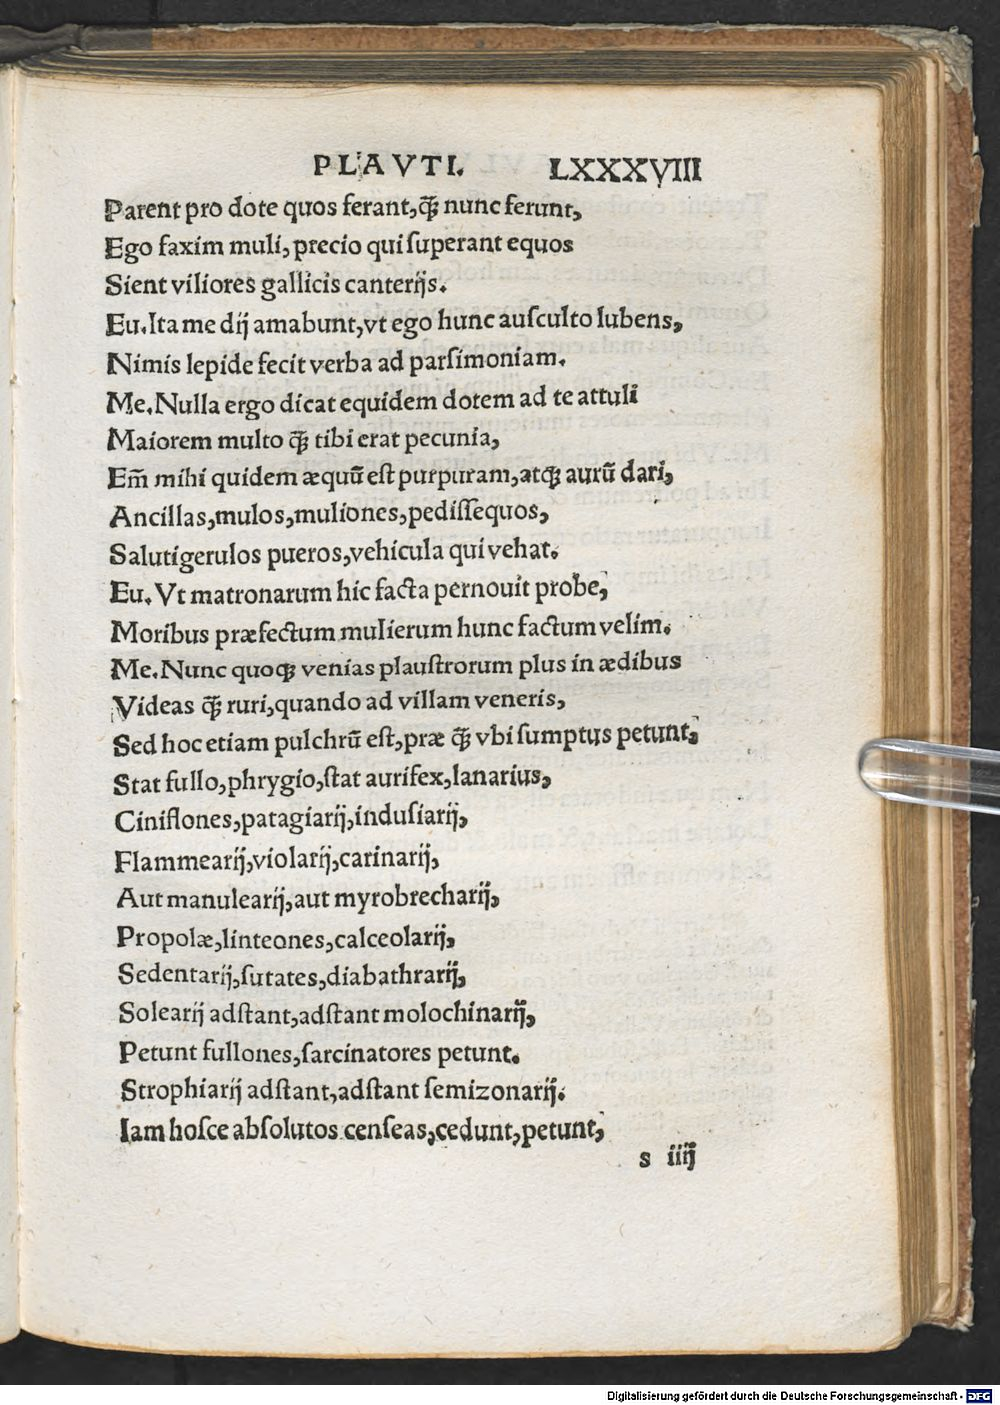 PLAVTI. LXXXVIII
Parent pro dote quos ferant,q̄ꝫ nunc ferunt,
Ego faxim muli, precio qui ſuperant equos
Sient viliores gallicis canterijs.
Eu.Ita me dij amabunt,vt ego hunc auſculto lubens,
Nimis lepide fecit verba ad parſimoniam.
Me.Nulla ergo dicat equidem dotem ad te attuli
Maiorem multo q̄ꝫ tibi erat pecunia,
Em̄ mihi quidem æquū eſt purpuram,atqꝫ aurū dari,
Ancillas,mulos,muliones,pediſſequos,
Salutigerulos pueros,vehicula qui vehat.
Eu. Vt matronarum hic facta pernouit probe,
Moribus præfectum mulierum hunc factum velim.
Me.Nunc quoqꝫ venias plauſtrorum plus in ædibus
Videas q̄ꝫ ruri,quando ad villam veneris,
Sed hoc etiam pulchrū eſt,præ q̄ꝫ vbi ſumptus petunt,
Stat fullo,phrygio,ſtat aurifex,lanarius,
Ciniflones,patagiarij,induſiarij,
Flammearij,violarij,carinarij,
Aut manulearij,aut myrobrecharij,
Propolæ,linteones,calceolarij,
Sedentarij,ſutates,diabathrarij,
Solearij adſtant,adſtant molochinarij,
Petunt fullones,ſarcinatores petunt.
Strophiarij adſtant,adſtant ſemizonarij.
Iam hoſce abſolutos cenſeas,cedunt,petunt,
s iiij
Digitalisierung gefördert durch die Deutsche Forschungsgemeinschaft - DFG